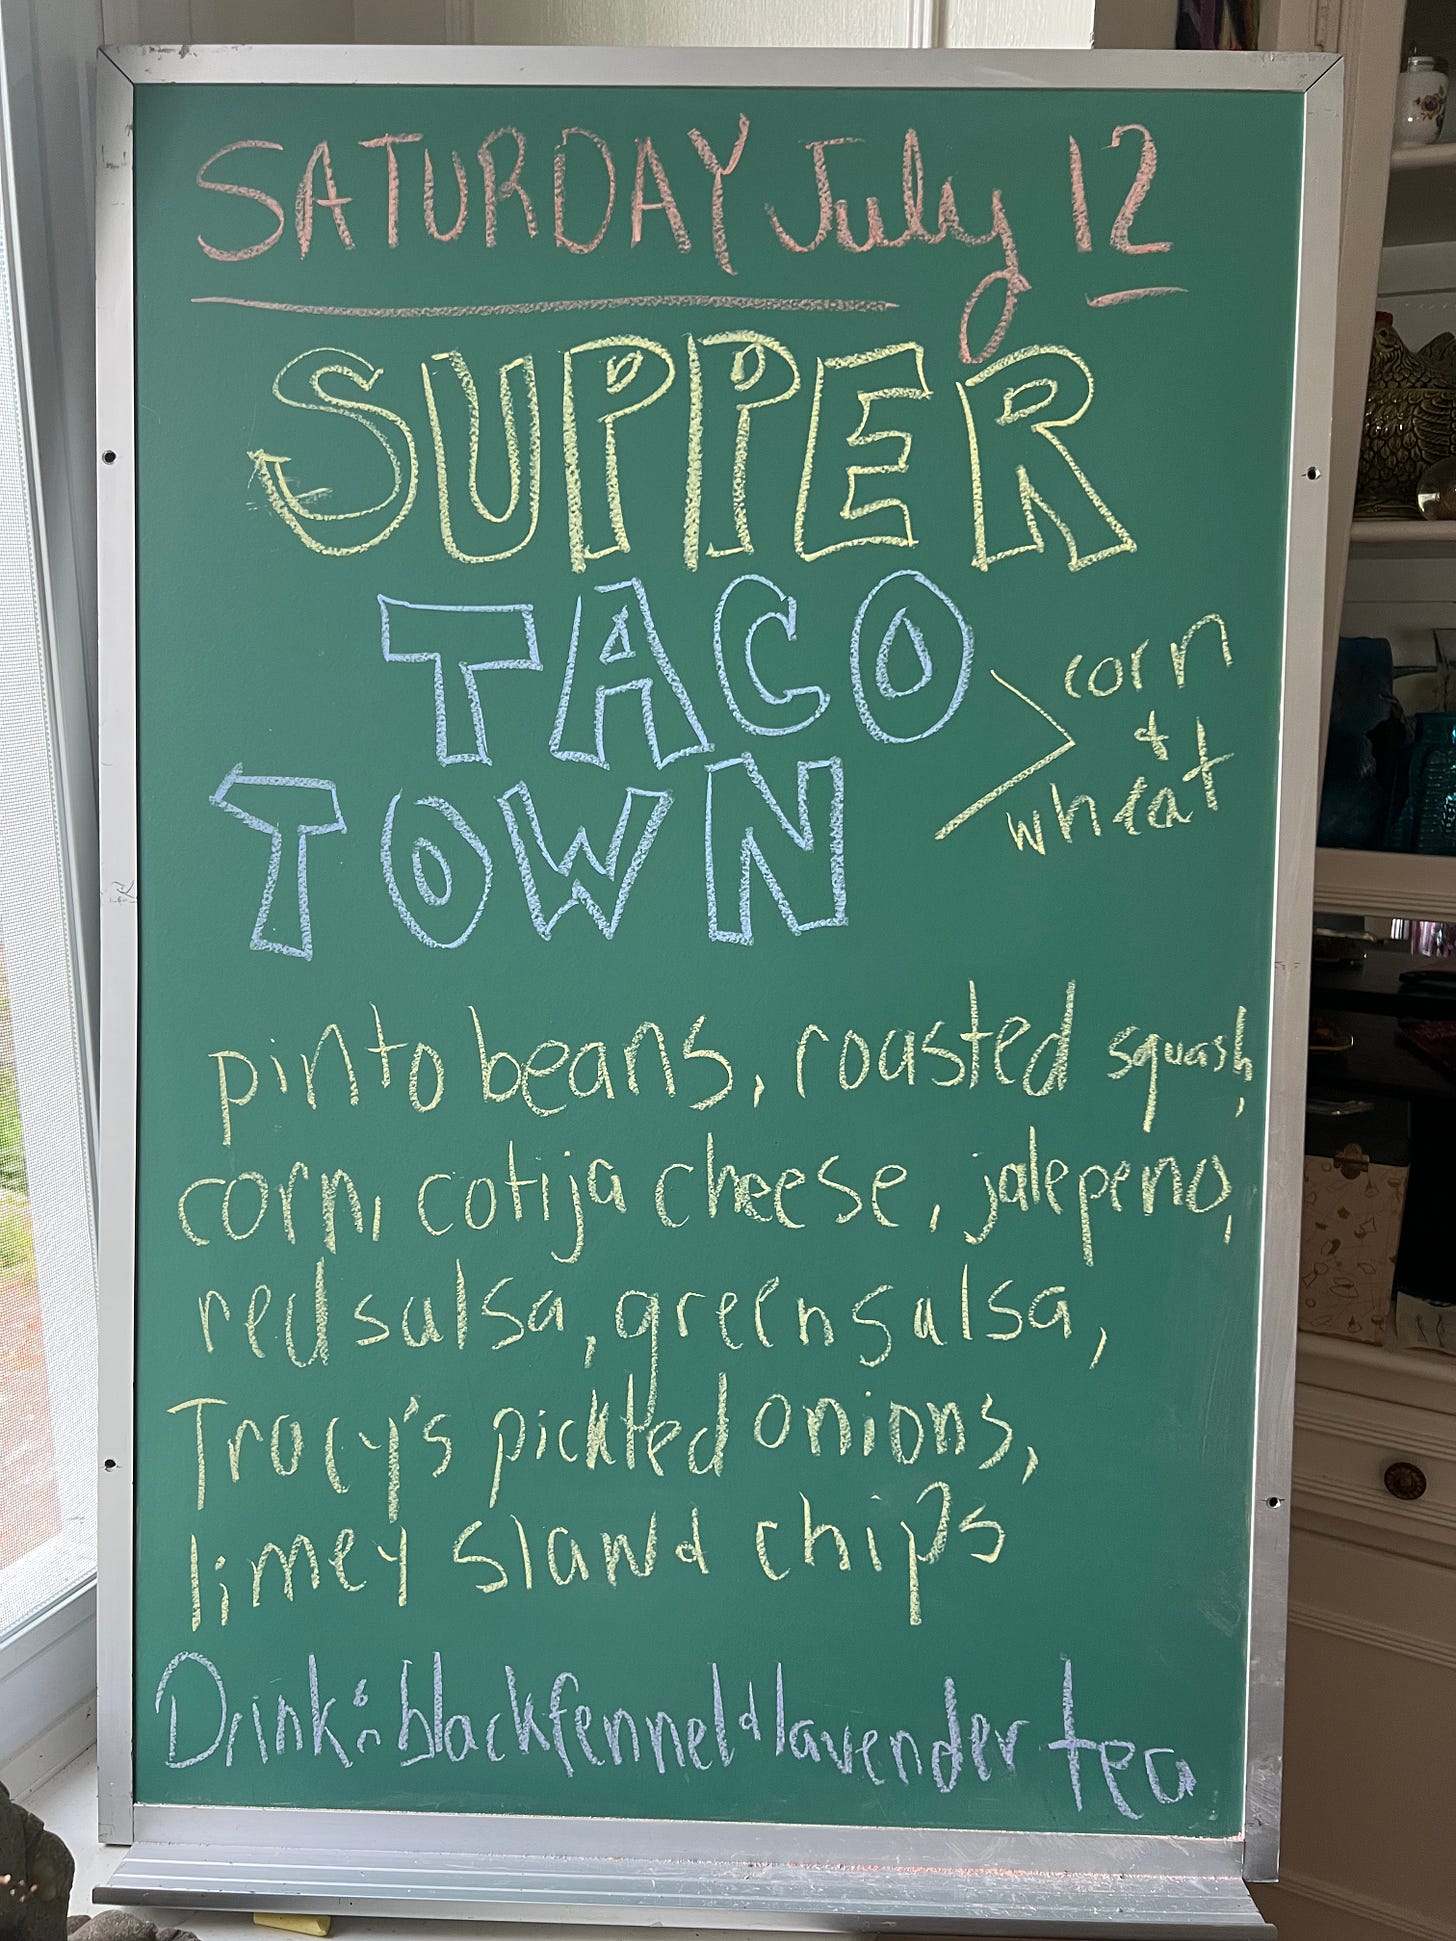 SATURDAY July 12
SUPPER
TACO
TOWN
corn
&
wheat
pinto beans, roasted squash,
corn, cotija cheese, jalepeno,
red salsa, green salsa,
Tracy's pickled onions,
limey slaw & chips
Drink: black fennel & lavender tea